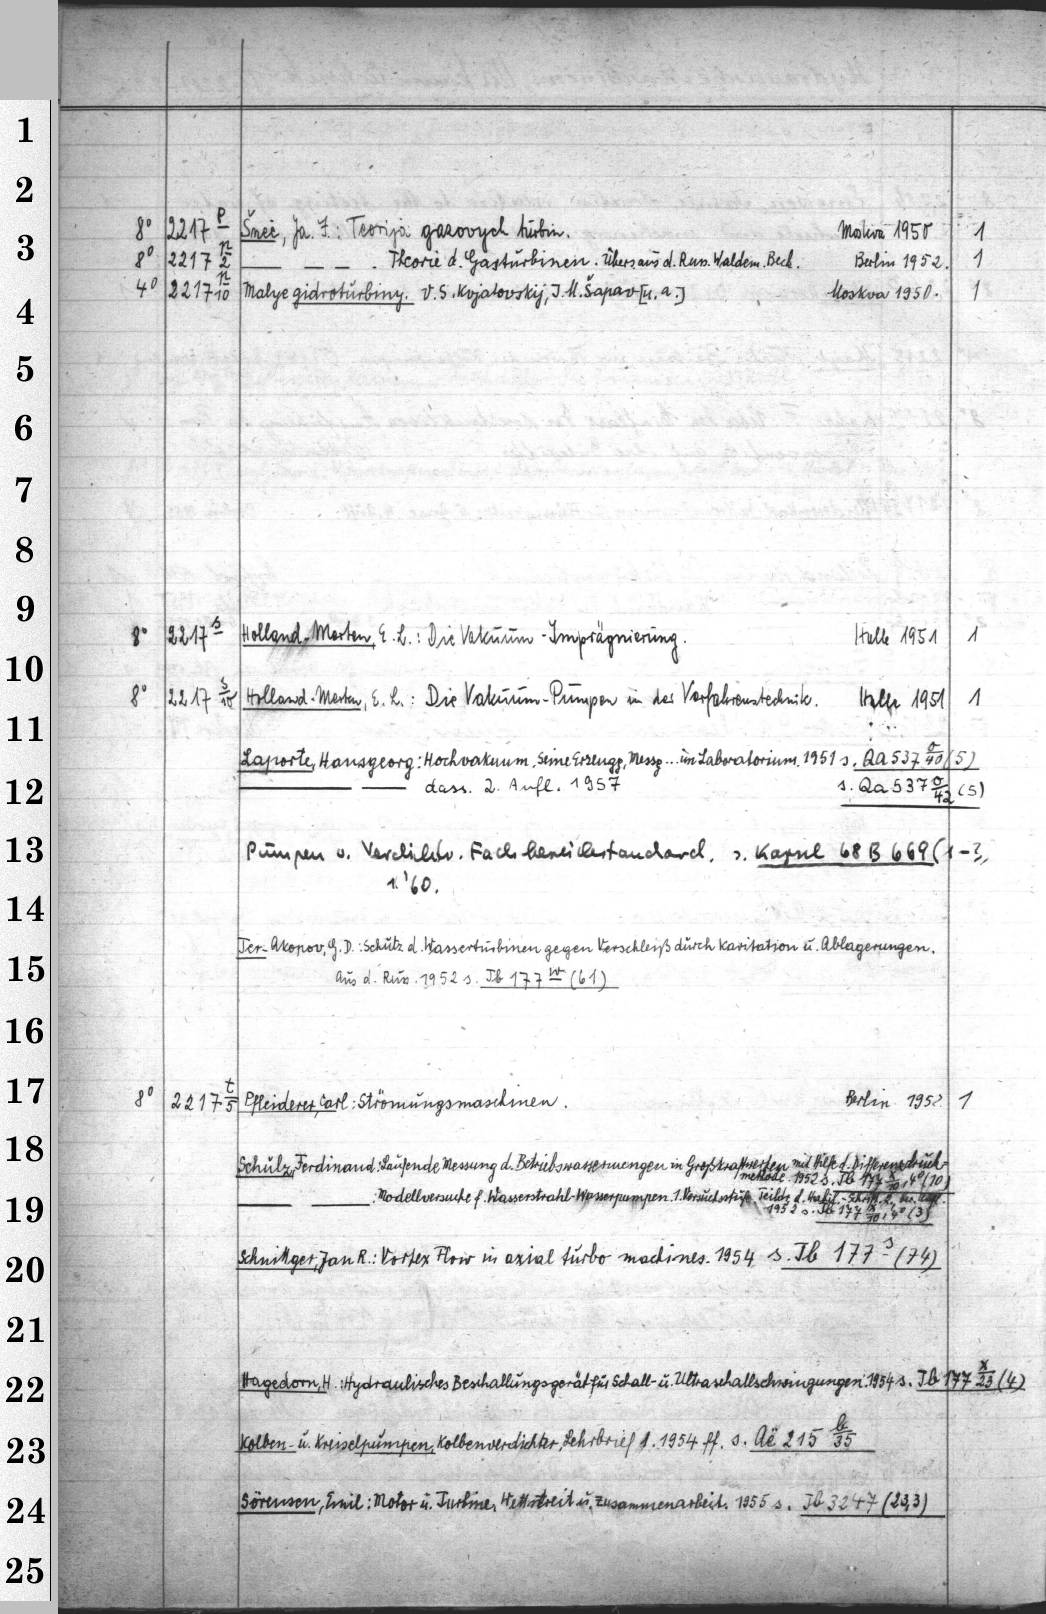 1
2
8° 2217 p Šneė, Ja. I.: Teorija gazovych turbin. Moskva 1950 1
3
8° 2217 n/2 — — — . Theorie d. Gasturbinen. Übers. aus d. Russ. Waldem. Beck. Berlin 1952. 1
4° 2217 n/10 Malye gidroturbiny. V. S. Kvjatovskij, I. M. Šapav [u. a.] Moskva 1950. 1
4
5
6
7
8
9
8° 2217 s Holland-Merten, E. L.: Die Vakuum-Imprägnierung. Halle 1951 1
10
8° 2217 s/10 Holland-Merten, E. L.: Die Vakuum-Pumpen in der Verfahrenstechnik. Halle 1951 1
11
Laporte, Hansgeorg: Hochvakuum. Seine Erzeugg, Messg ... im Laboratorium. 1951 s. Qa 537 o/40 (5)
12
— — dass. 2. Aufl. 1957 s. Qa 537 o/42 (5)
13
Pumpen u. Verdichter. Fachbereichstandard. s. Kapsel 68 B 669 (1-
1.'60.
14
Ter-Akopov, G. D.: Schutz d. Wasserturbinen gegen Verschleiß durch Kavitation u. Ablagerungen.
15
Aus d. Russ. 1952 s. Ib 177 w (61)
16
17
8° 2217 t/5 Pfleiderer, Carl: Strömungsmaschinen. Berlin 1952 1
18
Schulz, Ferdinand: Laufende Messung d. Betriebswassermengen in Großkraftwerken mit Hilfe d. Differenzdruck-
methode. 1952 s. Ib 177 x/10, 4° (10)
19
— — : Modellversuche f. Wasserstrahl-Wasserpumpen. 1. Versuchsstufe
1952 s. Ib 177 x/10, 4° (3)
20
Schnittger, Jan R.: Vortex Flow in axial turbo machines. 1954 s. Ib 177 s (74)
21
22
Hagedorn, H.: Hydraulisches Beschallungsgerät für Schall- u. Ultraschallschwingungen. 1954 s. Ib 177 x/23 (4)
23
Kolben- u. Kreiselpumpen, Kolbenverdichter, Lehrbrief 1. 1954 ff. s. Aë 215 b/35
24
Sörensen, Emil: Motor u. Turbine, Wettstreit u. Zusammenarbeit. 1955 s. Ib 3247 (23,3)
25